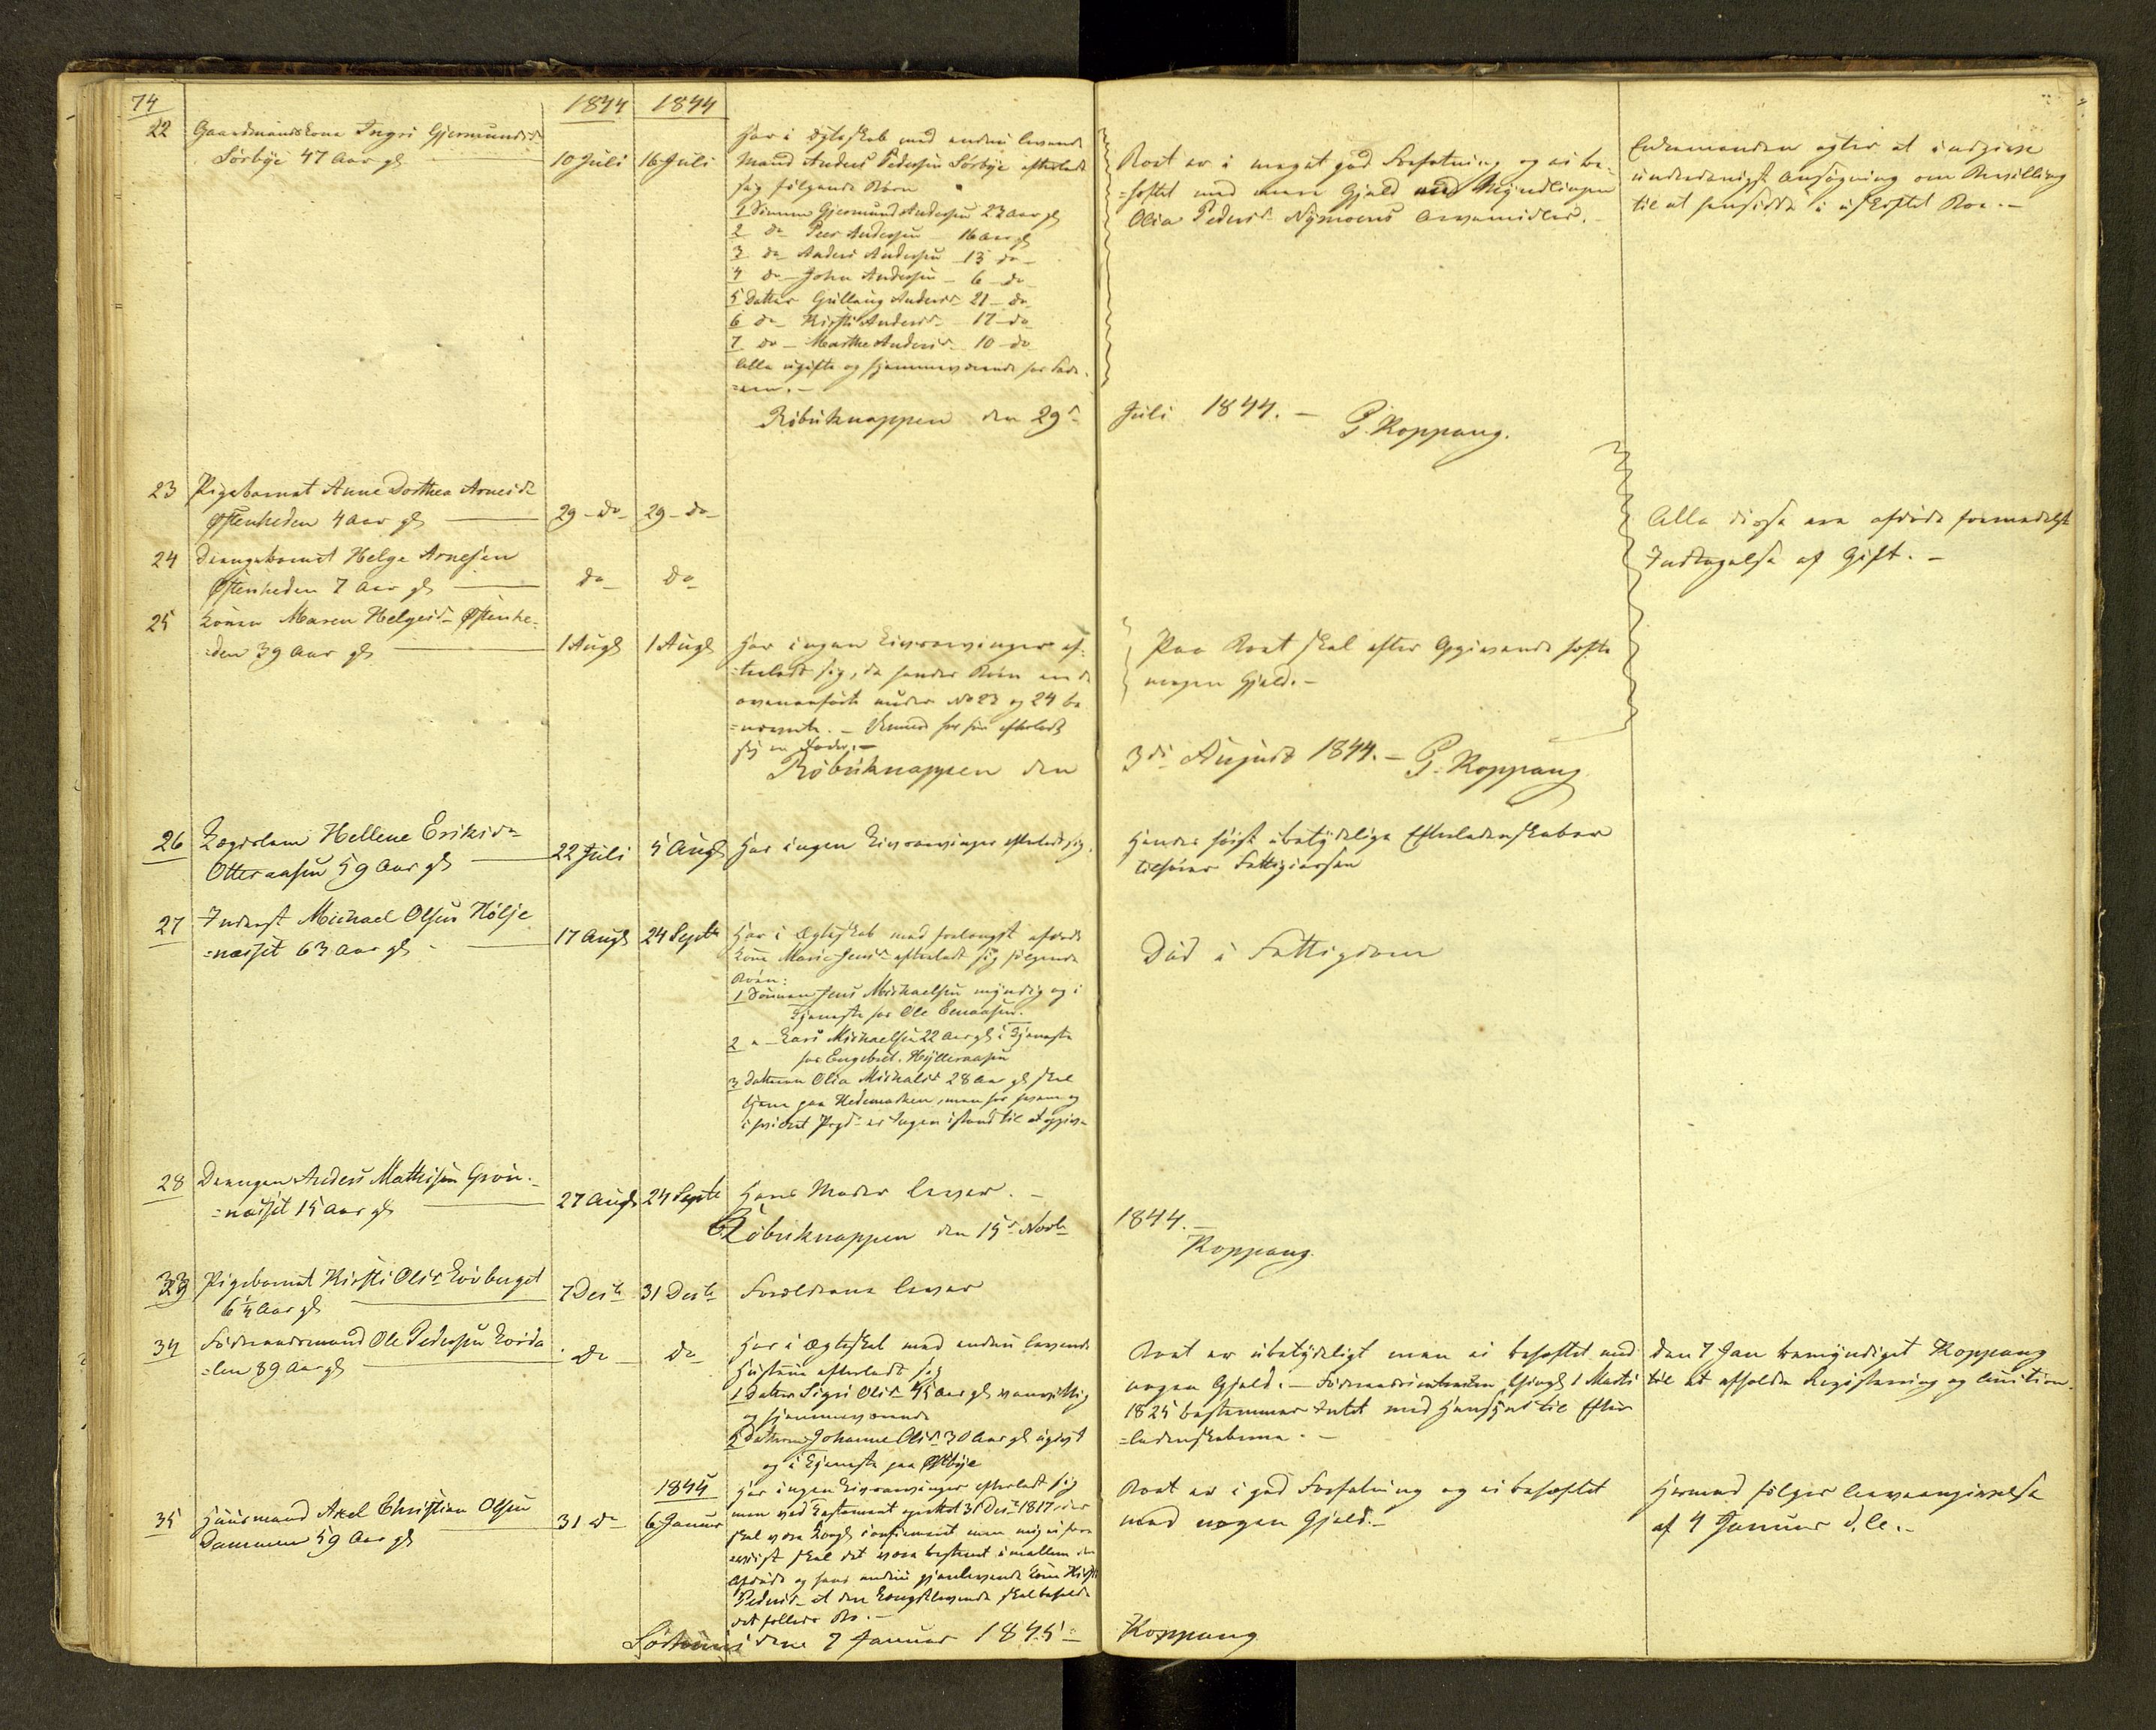 74
1844 1844
22 Gaardmandskone Ingri Gjermundsd
Sørbye 47 Aar gl 10 Juli 16 Juli
Har i Ægteskab med endnu levende
Mand Anders Pedersen Sørbye efterladt
sig følgende Børn
1 Sønnen Gjermund Andersen 23 Aar gl
2 do Peer Andersen 16 Aar gl
3 do Anders Andersen 13 do
4 do John Andersen 6 do
5 Datter Gullaug Andersd 21 do
6 do Kirsti Andersd 17 do
7 do Marthe Andersd 10 do
Alle ugifte og hjemmeværende hos Fade-
=ren.
Boet er i meget god Forfatning og ei be-
=heftet med mere Gjeld end Myndlingen
Olia Pedersd Nymoens Arvemidler.
Enkemanden agter at indgive
underdanigst Ansøgning om Bevilling
til at hensidde i uskiftet Boe.
Røbuknappen den 29d Juli 1844. P. Koppang.
23 Pigebarnet Anne Dorthea Arnesd
Østenheden 4 Aar gl 29 do 29 do
24 Drengebarnet Helge Arnesen
Østenheden 7 Aar gl do do
Alle disse ere afdøde formedelst
Indtagelse af Gift.
25 Konen Maren Helgesd Østenhe-
=den 39 Aar gl 1 Augs 1 Augs
Har ingen Livsarvinger ef-
=terladt sig, da hendes Børn er de
ovenanførte under No 23 og 24 be
=nævnte. har hun efterladt
sig en Fader.
Paa Boet skal efter Opgivende hefte
nogen Gjeld.
Røbuknappen den 3di August 1844. P. Koppang
26 Lægdslem Hellene Eriksd
Otteraasen 59 Aar gl 22 Juli 5 Augs Har ingen Livsarvinger efterladt sig.
Hendes høist ubetydelige Efterladenskaber
tilhører Fattigcassen
27 Inderst Michael Olsen Hølje
=næsset 63 Aar gl 17 Augs 24 Septb
Har i Ægteskab med forlængst afdøde
Kone Marie Jensd efterladt sig følgende
Børn:
1 Sønnen Jens Michaelsen myndig og i
Tjeneste hos Ole
2 " Lars Michaelsen 22 Aar gl i Tjeneste
hos Engebret Hylleraasen
3 Datteren Olia Michalsd 28 Aar gl skal
tjene paa Hedemarken, men hos hvem og
i hvilket Prgd er Ingen istand til at opgive
Død i Fattigdom
28 Drengen Anders Mathisen Grøn-
=næsset 15 Aar gl 27 Augs 24 Septb Hans Moder lever.
Røbuknappen den 15d Novb 1844.
Koppang
33 Pigebarnet Kirsti Olsd Løvberget
6 1/4 Aar gl 7 Decb 31 Decb Forældrene lever
34 Føderaadsmand Ole Pedersen Lørda
=len 89 Aar gl do do
Har i Ægteskab med endnu levende
Hustrue efterladt sig
1 Datter Sigri Olsd 45 Aar gl vanvittig
og hjemmeværende
2 Datteren Johanne Olsd 30 Aar gl ugivt
og i Tjeneste paa Østbye
Boet er ubetydeligt men ei beheftet med
nogen Gjeld. Føderaadscontracten thinglt 1 Marts
1825 bestemmer Intet med Hensyn til Efter
=ladenskaberne.
Den 7 Jan bemyndiget Koppang
til at afholde Registrering og Auction.
1845
35 Huusmand Axel Christian Olsen
Dammen 59 Aar gl 31 do 6 Januar
Har ingen Livsarvinger efterladt sig
men ved Testament oprettet 31 Decb 1817 der
skal være Kongl confirmeret men mig ei fore
=vist skal det være bestemt imellem den
Afdøde og hans endnu gjenlevende Kone Kirsti
Pedersd at den Længstlevende skal beholde
det fælles Bo.
Boet er i god Forfatning og ei beheftet
med nogen Gjeld.
Hermed følger Arveangivelse
af 4 Januar d. A.
den 7 Januar 1845 Koppang